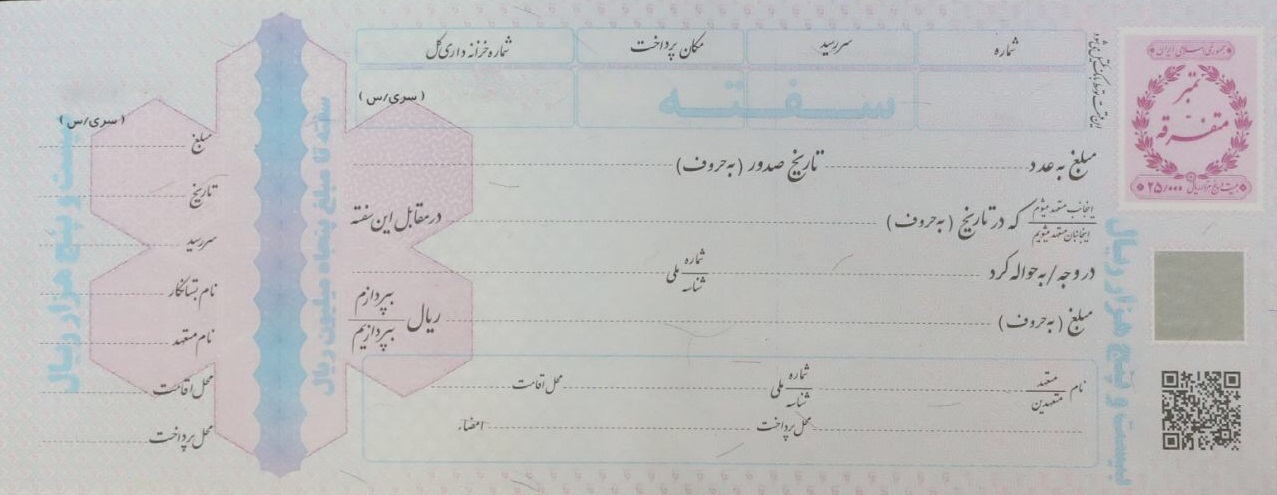 جمهوری اسلامی ایران
تمبر
متفرقه
بیست و پنج هزار ریال ۲۵/۰۰۰
شماره
سررسید
مکان پرداخت
شماره خزانه داری کل
سفته
(سری/س)
مبلغ به عدد تاریخ صدور (به حروف)
اینجانب متعهد میشوم
اینجانبان متعهد میشویم
که در تاریخ (به حروف) در مقابل این سفته
در وجه/به حواله کرد شماره
شناسه
ملی
مبلغ (به حروف) ریال بپردازم
بپردازیم
نام متعهد
متعهدین
شماره
شناسه
ملی
محل اقامت
محل پرداخت امضاء
بیست و پنج هزار ریال
سفته تا مبلغ پنجاه میلیون ریال
(سری/س)
مبلغ
تاریخ
سررسید
نام بستانکار
نام متعهد
محل اقامت
محل پرداخت
بیست و پنج هزار ریال